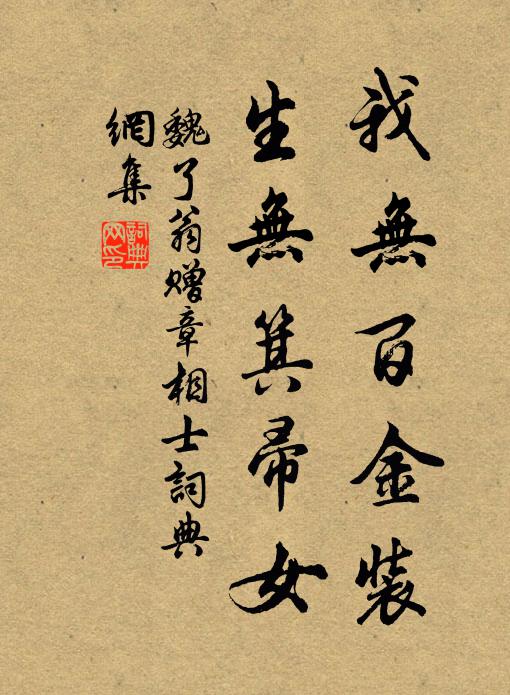 我無百金裝
生無箕帚女
魏了翁贈章相士詞典
網集
詞典網印